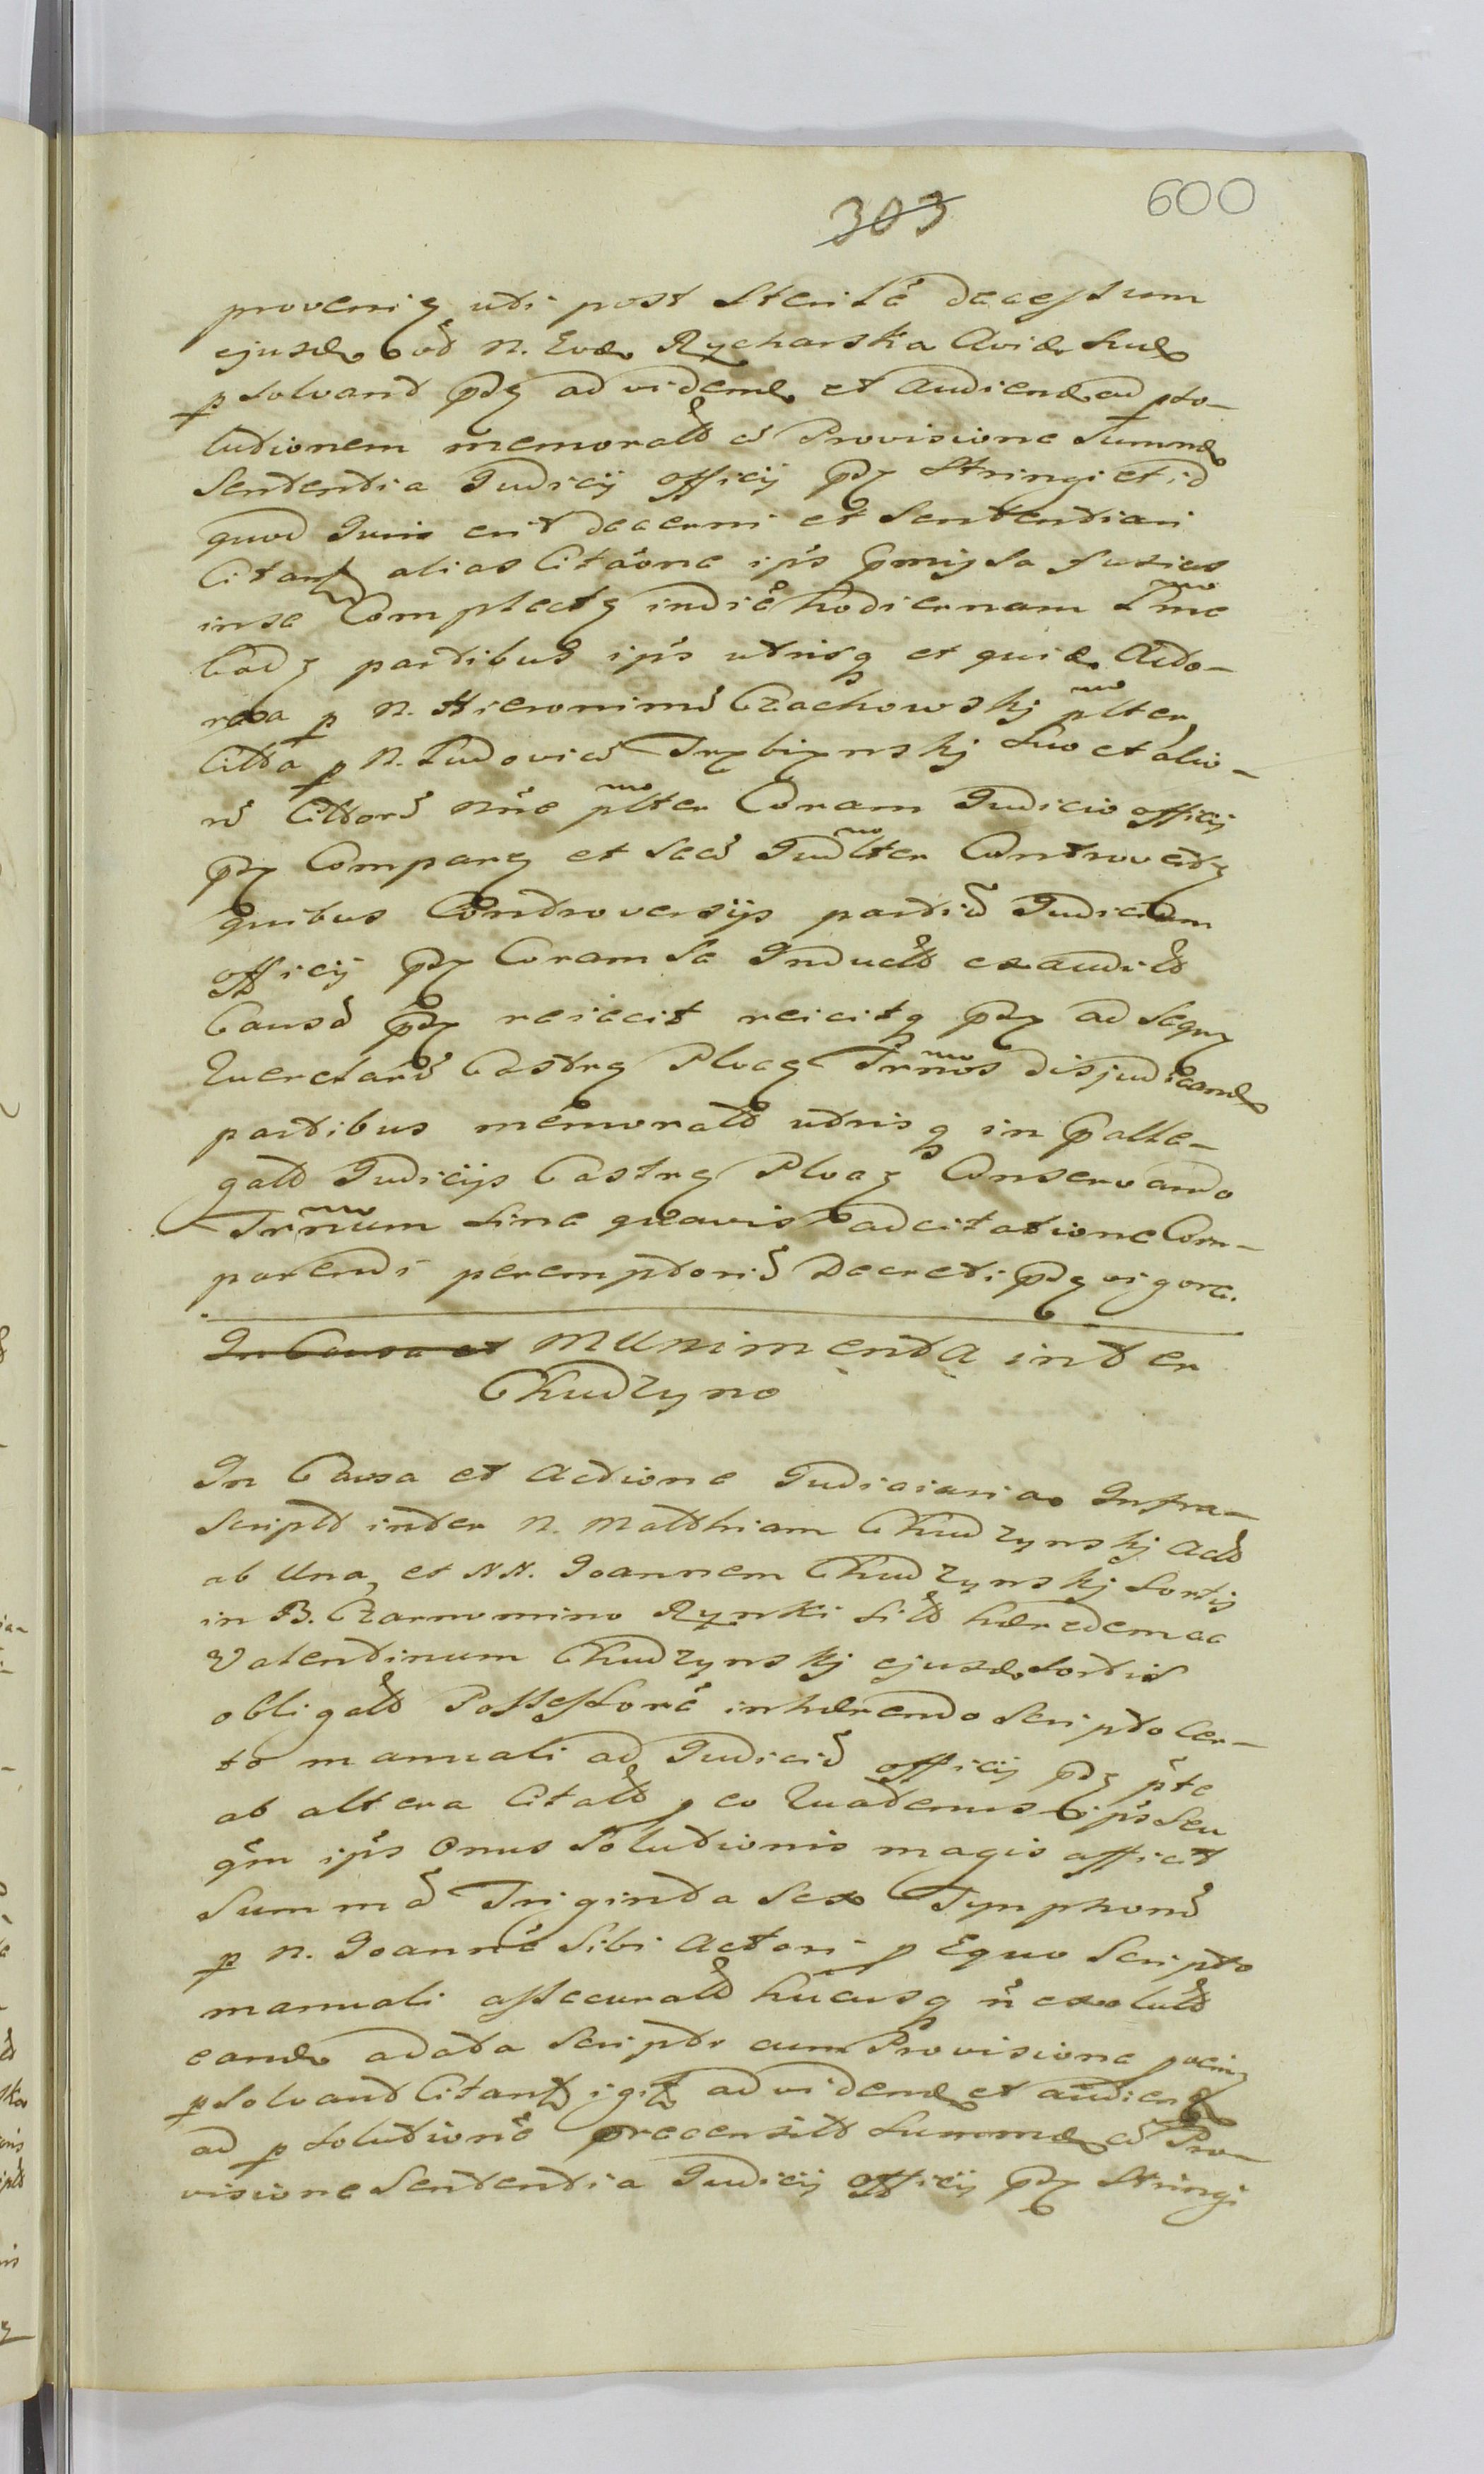 303 600
provenien uti post sterilē decessum
ejusd. N. Evæ Rycharska Aviæ suæ
psolvand pdt ad vidend. et audiend. ad pso-
lutionem memoratt cū Provisione Summæ
Sententia Judicij officij pdt Stringi et id
quod Juris erit decerni et Sententiari
Citant alias Citāone ipīs pmissa fusius
in se Complect in diē hodiernam Lmē
Cad partibus ipīs utrisq et quid. Acto-
rea p N. Hieronimū Czachowskj plter
Citta p N. Ludovicū Trzbiynskj Suo et alio-
rū Cittorū nnē plter Coram Judicio officij
pdt Comparen et secū Judlter Controverten
quibus Controversijs partiū Judicium
officij pdt Coram se Induct exaudit
Causā pdt reiecit reicitq pdt ad Seqn
Querelarū Castren Plocen Trnos disjudicand.
partibus memoratt utrisq in palle-
gatt Judicijs Castren Plocen Conservando
Trnum sine quavis adcitatione Com-
parendi peremptoriū Decreti pdt vigore.
In Causa et MUnimenta inter
Chudzyno
In Causa et Actione Judiciaria Infra-
script inter N. Matthiam Chudzynskj Act
ab Una, et NN. Joannem Chudzynskj Sortis
in B. Czarnomino Rynki sitt hæredem ac
Valentinum Chudzynskj ejusd. Sortis
obligatt Possessorē inhærendo Scripto Cer-
to manuali ad Judiciū officij pdt pte
ab altera Citatt eo Quatenus ipīs Seu
qm ipīs Onus Solutionis magis afficit
Summā Triginta Sex Tynphonū
p N. Joannē Sibi Actori p Equo Scripto
manuali assecuratt hucusq n exolutt
eand. a data Scripti cum Provisione
psolvand Citant igit ad vidend. et audiend.
ad psolutionē præcensitt Summæ cū Pro-
visione Sententia Judicij officij pdt Stringi